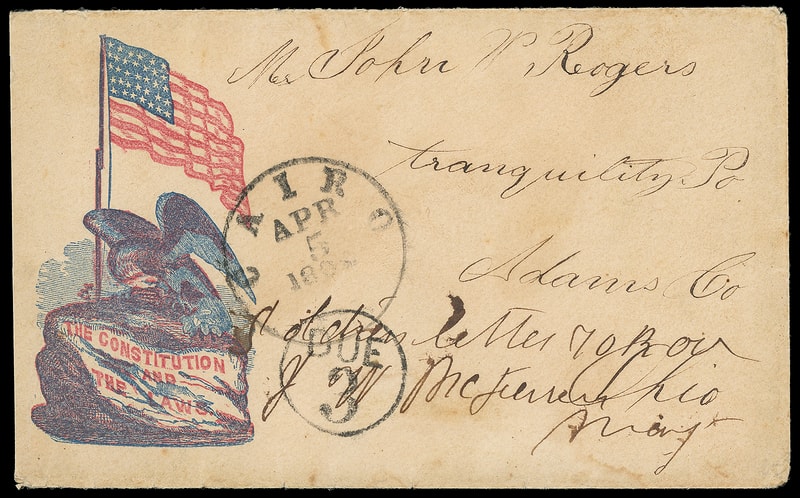 Mr John W Rogers
tranquility Po
Adams Co
Ohio
Soldiers letter 70 Rov
J W McFerren
Maj
CAIRO
APR
5
DUE
3
THE CONSTITUTION
AND
THE LAWS